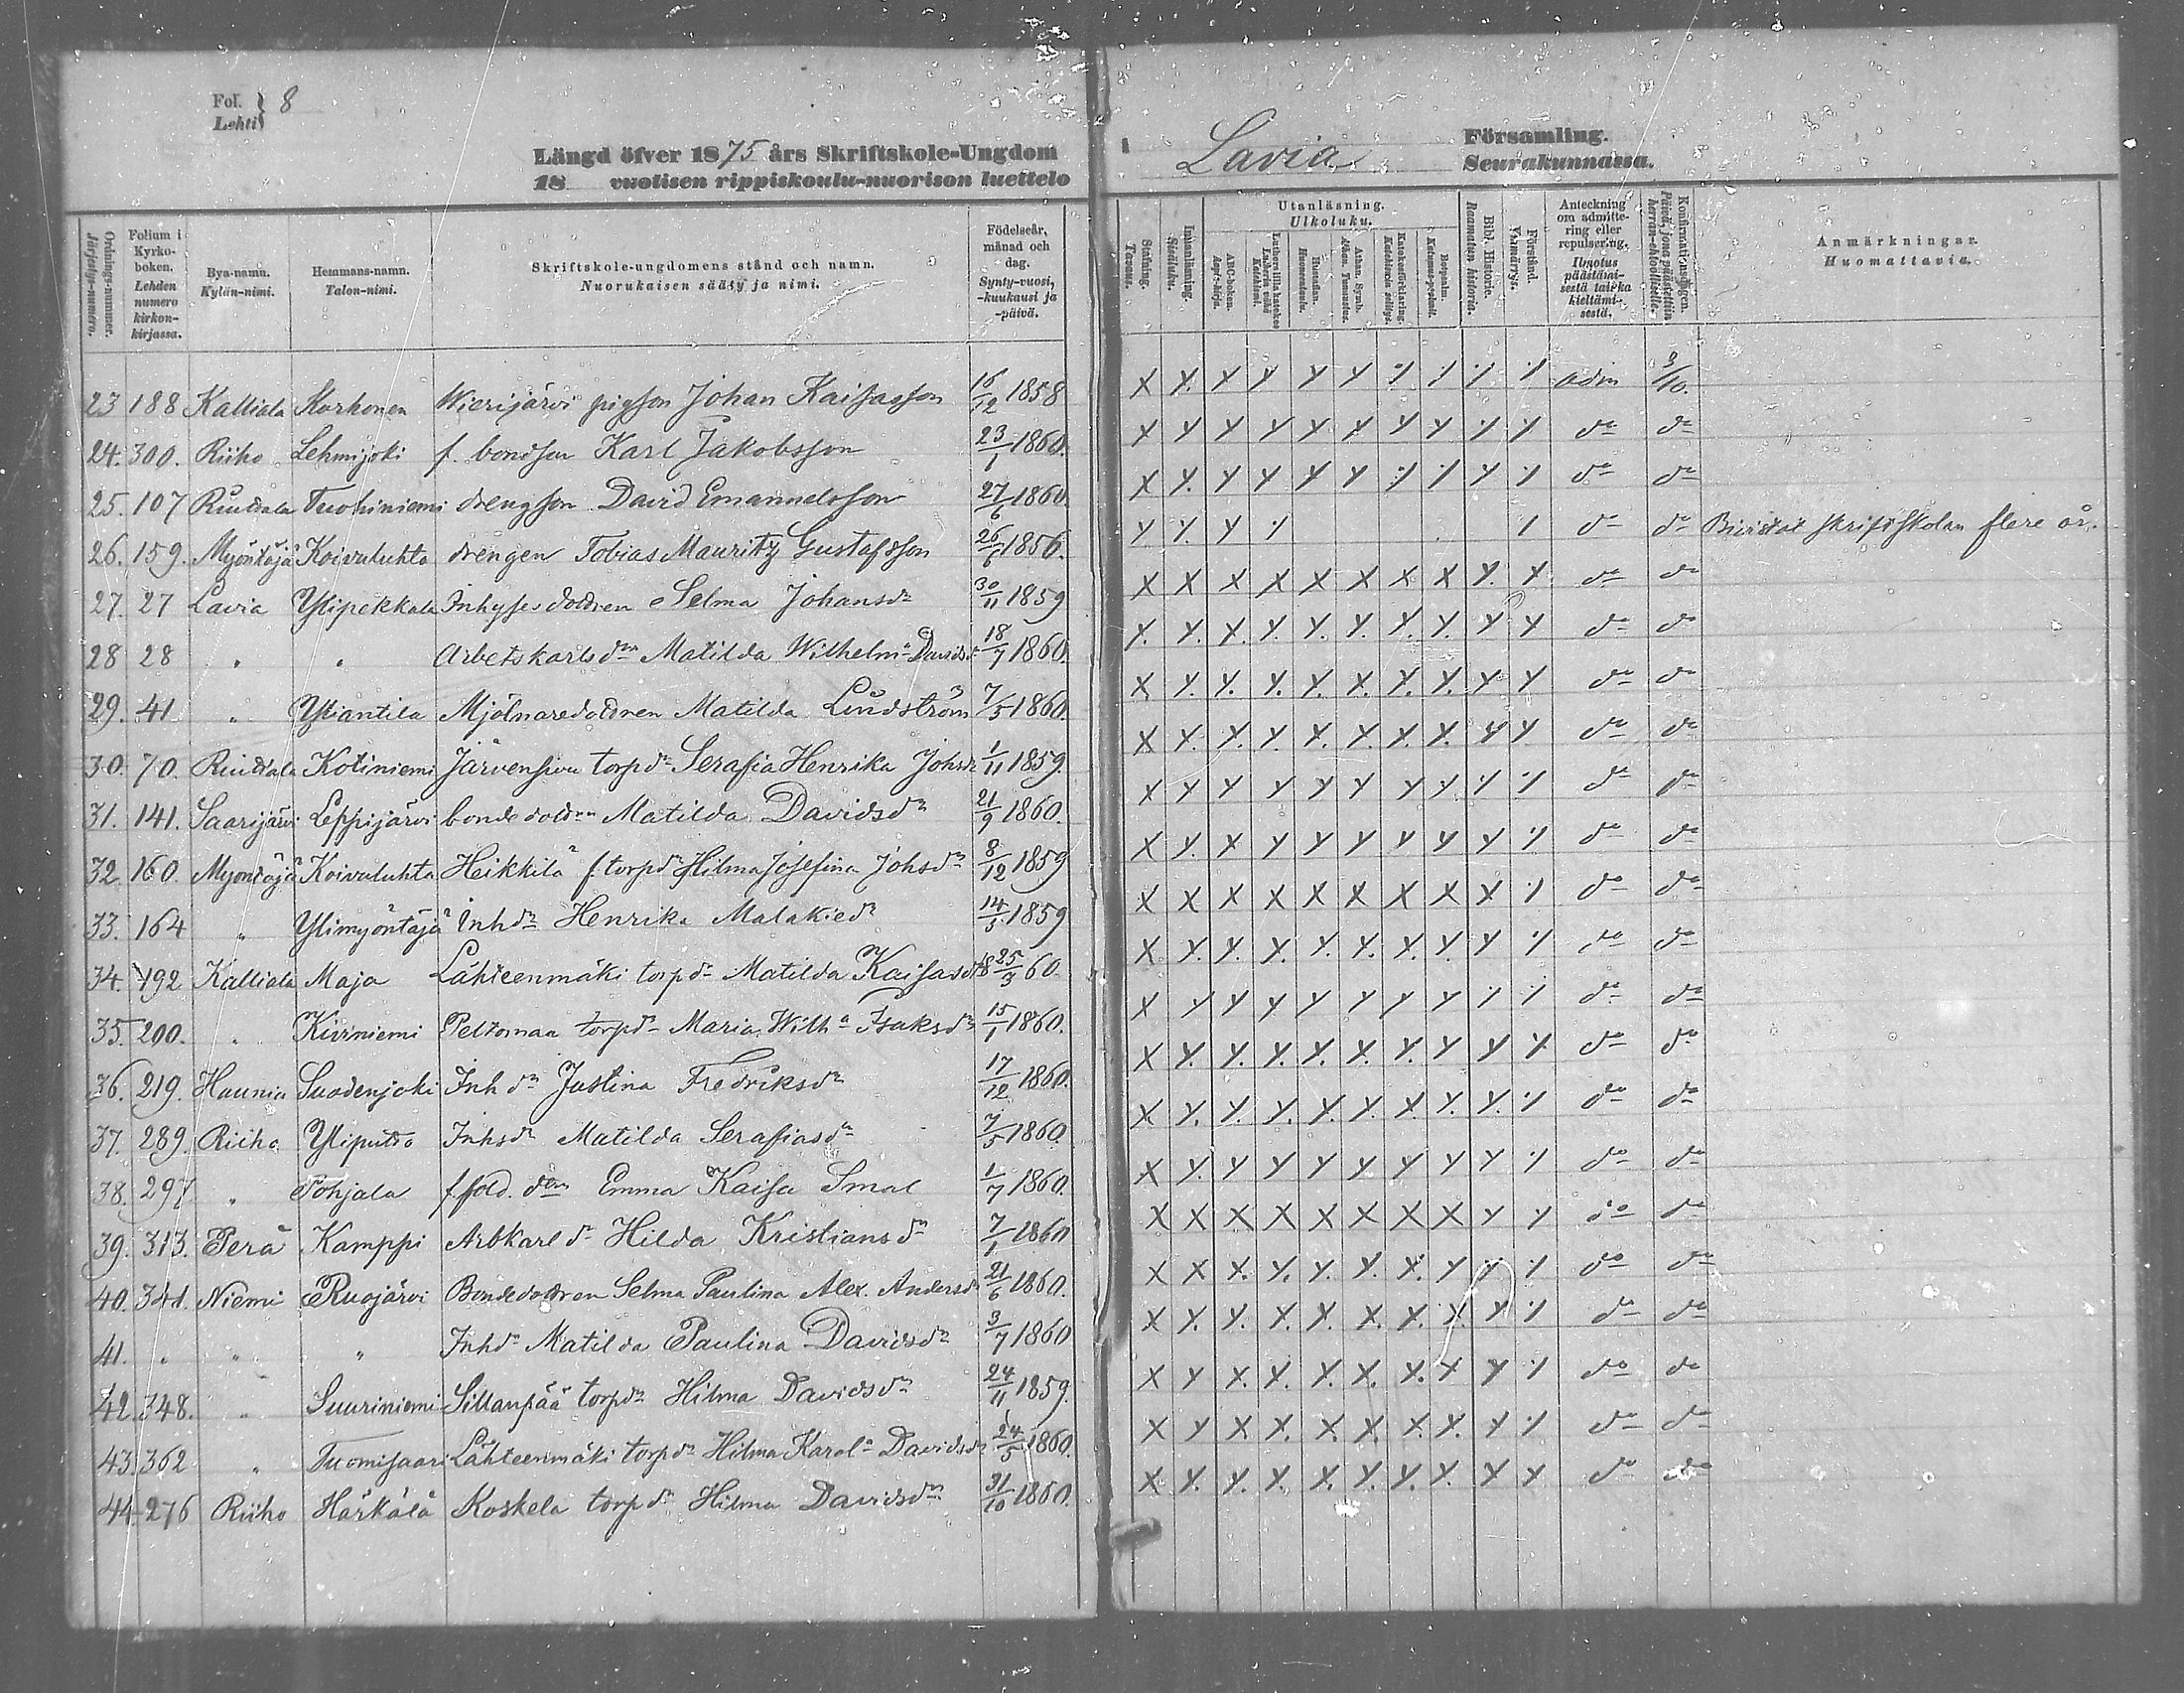 Fol. } 8
Lehti
Längd öfver 1875 års Skriftskole-Ungdom
18 vuotisen rippiskoulu-nuorison luettelo
Lavia Församling.
Seurakunnassa.
Ordnings-nummer. Järjestys-numero.
Folium i Kyrko-boken. Lehden numero kirkon-kirjassa.
Bya-namn. Kylän-nimi.
Hemmans-namn. Talon-nimi.
Skriftskole-ungdomens stånd och namn. Nuorukaisen sääty ja nimi.
Födelseår, månad och dag. Synty-vuosi, -kuukausi ja -päivä.
Stafning. Tavaus.
Innanläsning. Sisäluku.
Utanläsning. Ulkoluku.
ABC-boken. Aapis-kirja.
Lutheri lilla katekes Lutherin vähä Katekismi.
Hustaflan. Huoneentaulu.
Athan. Symb. Athan. Tunnustus.
Katekesförklaring. Katekismin selitys.
Botpsalm. Katumus-psalmit.
Bibl. Historie. Raamatun historia.
Förstånd. Ymmärrys.
Anteckning om admittering eller repulsering. Ilmotus päästämisestä taikka kieltämisestä.
Konfirmationsdagen. Päivä, jona päästettiin herran-ehtoolliselle.
Anmärkningar. Huomattavia.
23 188 Kalliala Korhonen Wierijärvi pigson Johan Kaisasson 16/12 1858 X X. Y Y Y Y ⁒ ⁒ ⁒ ⁒ adm 3/10.
24. 300. Riiho Lehmijoki f. bondson Karl Jakobsson 23/1 1860. X Y Y Y Y Y Y Y Y Y do do
25. 107 Ruodala Tuohiniemi drengson David Emanuelsson 27/6 1860. X Y. Y Y Y Y ⁒ ⁒ Y ⁒ do do
26. 159. Myöntäjä Koivuluhta drengen Tobias Mauritz Gustafsson 26/6 1856. Y Y. Y ⁒ ⁒ do do Bivistat skriftskolan flere år.
27. 27 Lavia Ylipekkala Inhyses dottren Selma Johansdr 30/11 1859 X X X X X X X X Y. Y do do
28 28 " " Arbetskarls dtrn Matilda Wilhelma Davidsdr 18/7 1860. Y. Y. X. Y. Y. Y. Y. Y. Y Y do do
29. 41 " Yliantila Mjölnaredottren Matilda Lindström 7/5 1860. X Y. Y. Y. Y. X. Y. Y. Y. Y do do
30. 70. Ruodala Kotiniemi Järvensivu torpdr Serafia Henrika Johsdr 1/11 1859. X Y. Y. Y. Y. Y. Y. Y. Y Y do do
31. 141. Saarijärvi Leppijärvi bonde dottrn Matilda Davidsdr 21/9 1860. X Y Y Y Y Y Y Y ⁒ ⁒ do do
32. 160. Myöntäjä Koivuluhta Heikkilä f. torpdr Hilma Josefina Johsdr 8/12 1859 X Y. X Y Y Y Y Y Y ⁒ do do
33. 164 " Ylimyöntäjä Inhdr Henrika Malakiedr 14/3 1859 X X X X X X X X X ⁒ do do
34. 192 Kalliala Maja Lähteenmäki torpdr Matilda Kaisasdr 18 25/3 60. X Y. Y. X. Y. Y. X. Y. Y ⁒ do do
35. 200. " Kiviniemi Peltomaa torpdr Maria Wilha Isaksdr 15/1 1860. X Y Y Y Y Y Y Y ⁒ ⁒ do do
36. 219. Haunia Suodenjoki Inh dr Justina Fredriksdr 17/12 1860. X Y. Y. Y. Y. X. Y. Y Y Y do do
37. 289. Riiho Yliputro Inhsdr Matilda Serafiasdr 7/5 1860. X Y. Y. Y. Y. Y. X Y. Y. ⁒ do do
38. 297 " Pohjala f. sold. dtrn Emma Kaisa Smal 1/7 1860. X Y. Y Y Y Y Y Y Y ⁒ do do
39. 313. Perä Kamppi Arbkarl dr Hilda Kristiansdr 7/1 1860 X X X X X X X X Y Y do do
40. 341. Niemi Ruojärvi Bondedottren Selma Paulina Alex. Andersdr 21/6 1860. X X X. Y. Y. Y. Y. Y Y ⁒ do do
41. " " " Inhdr Matilda Paulina Davidsdr 3/7 1860 X Y. Y. X. Y. X. X. Y. Y ⁒ do do
42. 348. " Suuriniemi Sillanpää torpdr Hilma Davidsdr 24/11 1859. X Y X. X. X. X. X. X Y ⁒ do do
43. 362 " Tuomisaari Lähteenmäki torpdr Hilma Karola Davidsdr 24/5 1860. X Y X X. X. X. X. X. Y ⁒ do do
44. 276 Riiho Härkälä Koskela torpdr Hilma Davidsdr 31/10 1860. X Y. Y. X. X. Y. Y. Y. X X do do